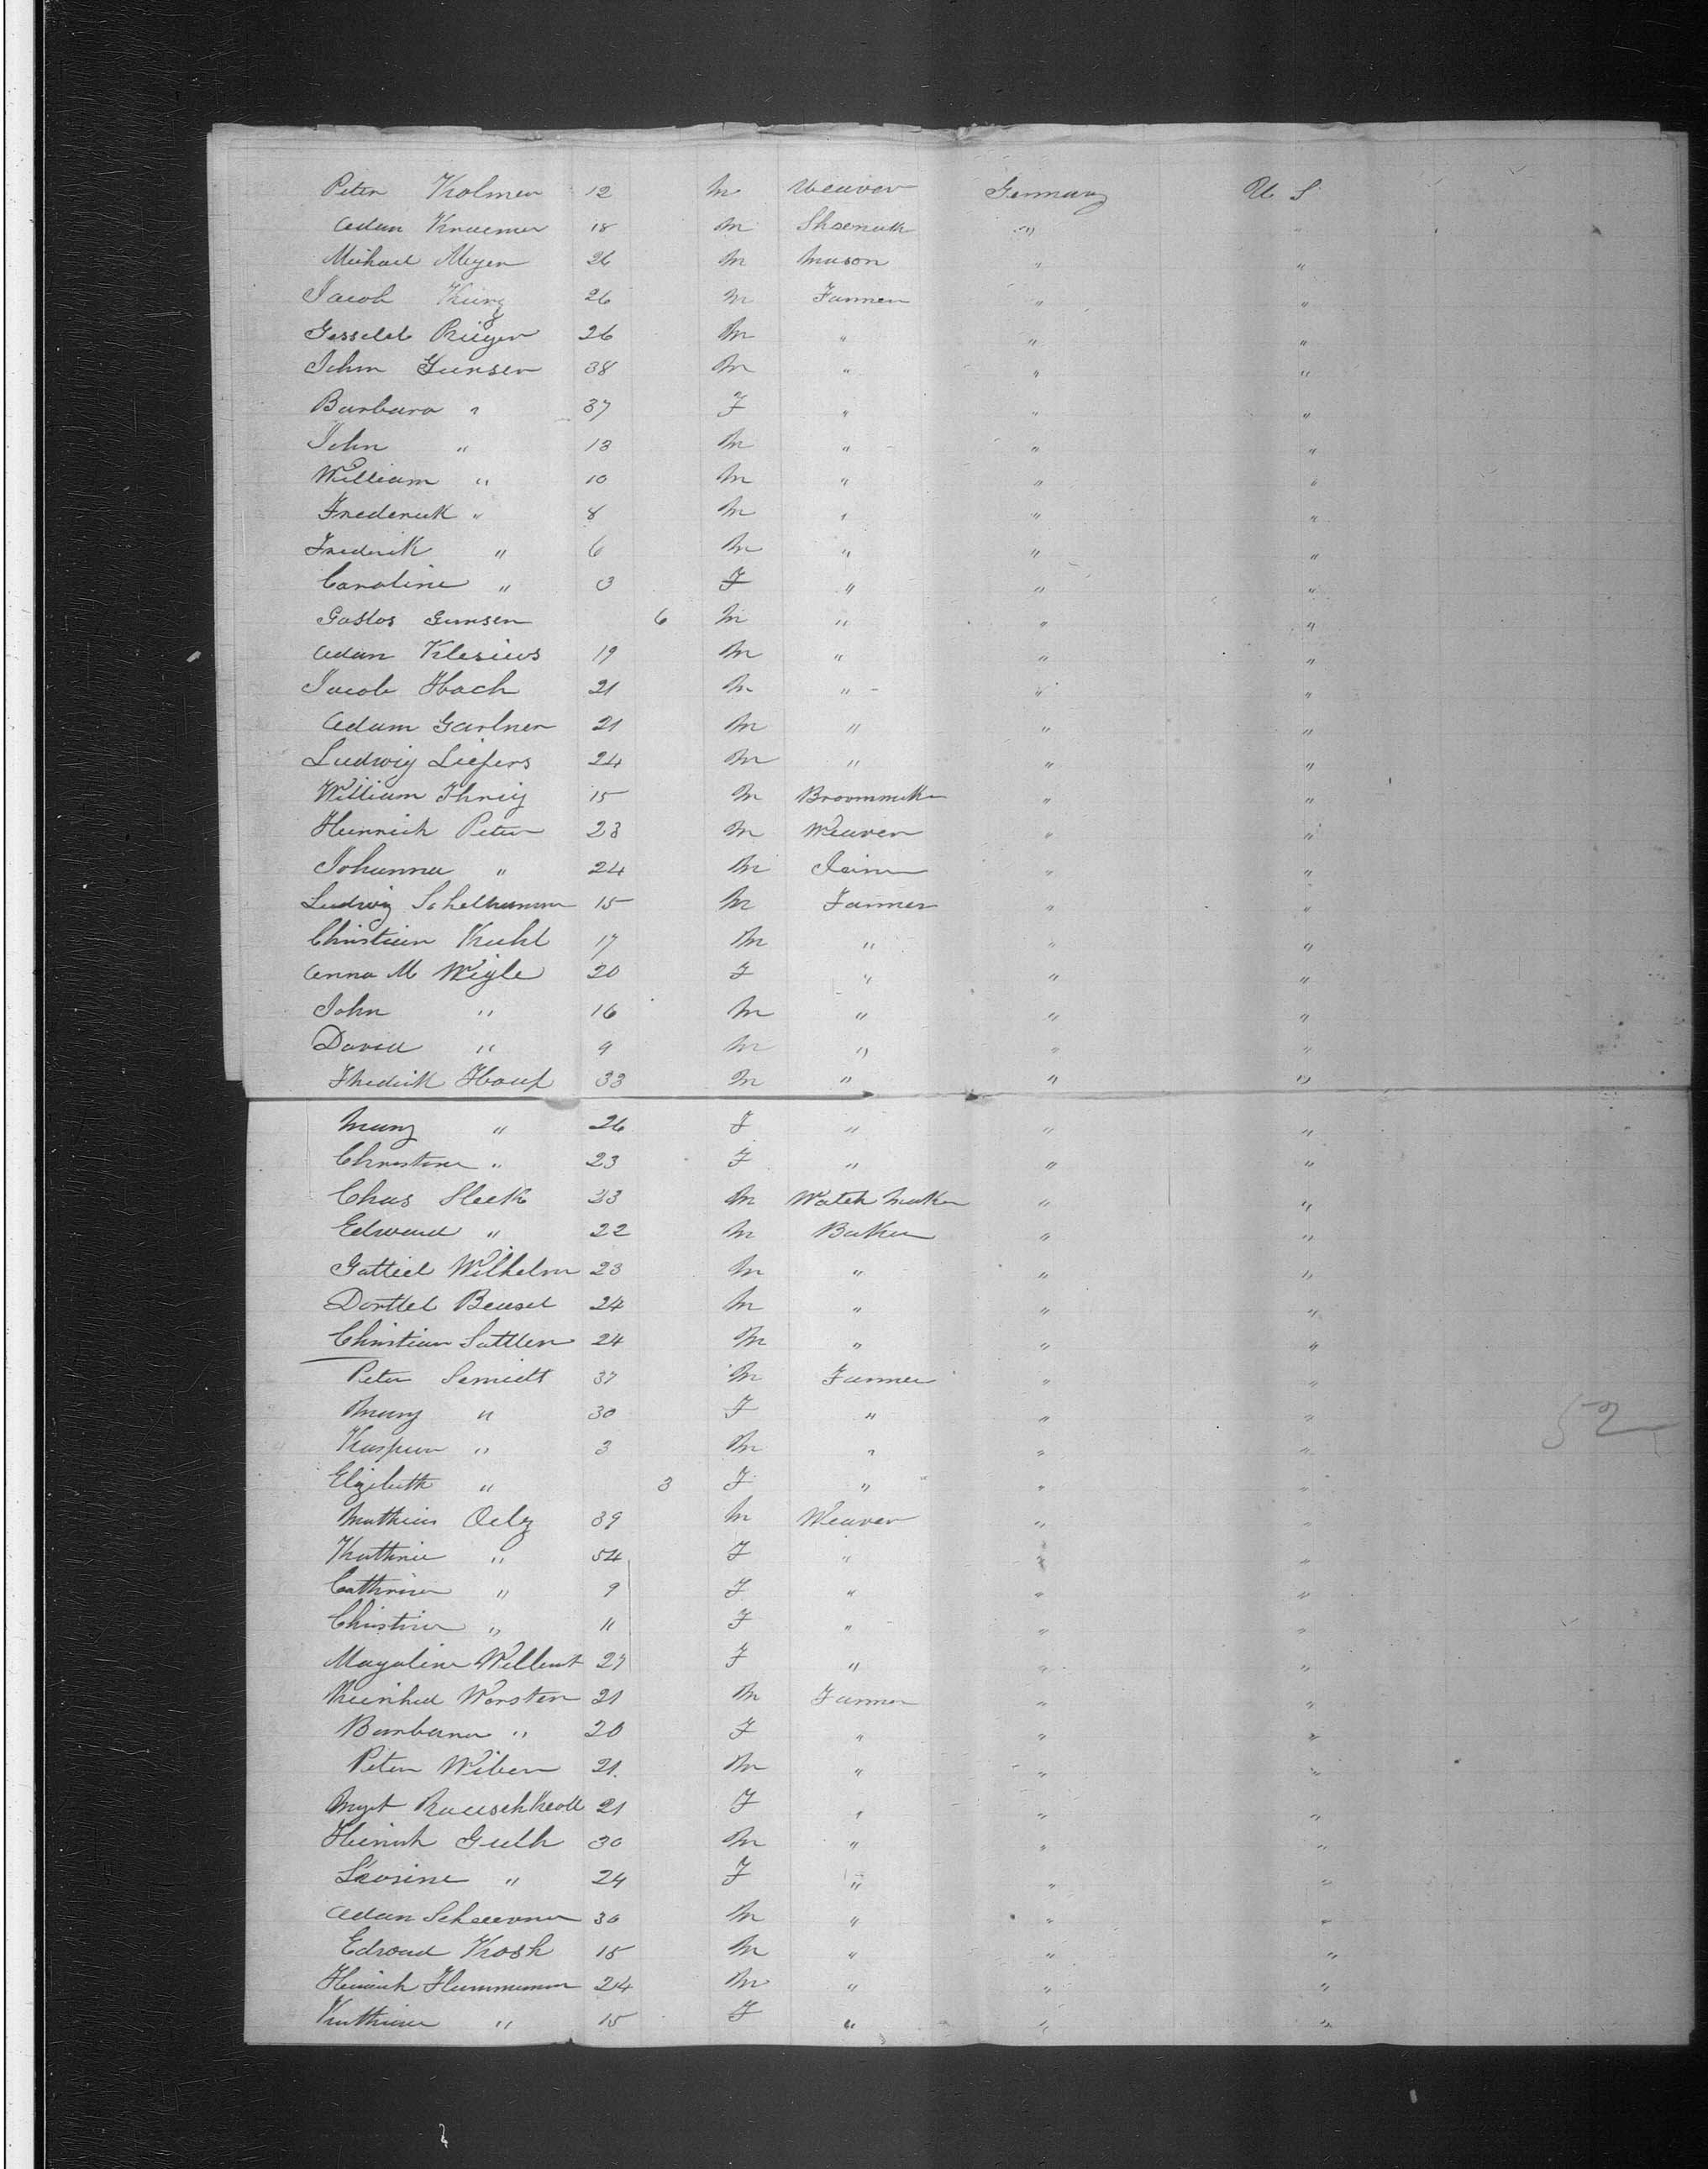 Peter Kolmer 12 M Weaver Germany U S
Adam Kraemer 18 M Shoemak " "
Michael Meyer 26 M Mason " "
Jacob Kurz 26 M Farmer " "
Rieger 26 M " " "
John Gunser 38 M " " "
Barbara " 37 F " " "
John " 13 M " " "
William " 10 M " " "
Frederick " 8 M " " "
Frederik " 6 M " " "
Caroline " 3 F " " "
Gunsen 6 M " " "
Adam Klesius 19 M " " "
Jacob Hoch 21 M " " "
Adam Gartner 21 M " " "
Ludwig Liefers 24 M " " "
William Ihrig 15 M Broommaker " "
Heinrich Peter 23 M Weaver " "
Johanna " 24 M " "
Ludwig 15 M Farmer " "
Christian Kuhl 17 M " " "
Anna M Wigle 20 F " " "
John " 16 M " " "
David " 9 M " " "
Fredrik Houp 33 M " " "
Mary " 26 F " " "
Christine " 23 F " " "
Chas Sleek 23 M Watch Maker " "
Edward " 22 M Baker " "
Wilhelm 23 M " " "
Beusel 24 M " " "
Christian Sattler 24 M " " "
Peter Smidt 37 M Farmer " "
Mary " 30 F " " "
Kasper " 3 M " " "
Elizabeth " 3 F " " "
52
Mathias Oelz 39 M Weaver " "
Kathrie " 54 F " " "
Cathrine " 9 F " " "
Christine " 11 F " " "
Magaline 27 F " " "
Worster 21 M Farmer " "
Barbara " 20 F " " "
Peter Wiber 21 M " " "
Mrgt 21 F " " "
Heinrich Guth 30 M " " "
" 24 F " " "
Adam 30 M " " "
Edward Kosh 15 M " " "
Heinrich Hammaman 24 M " " "
Kathrine " 15 F " " "